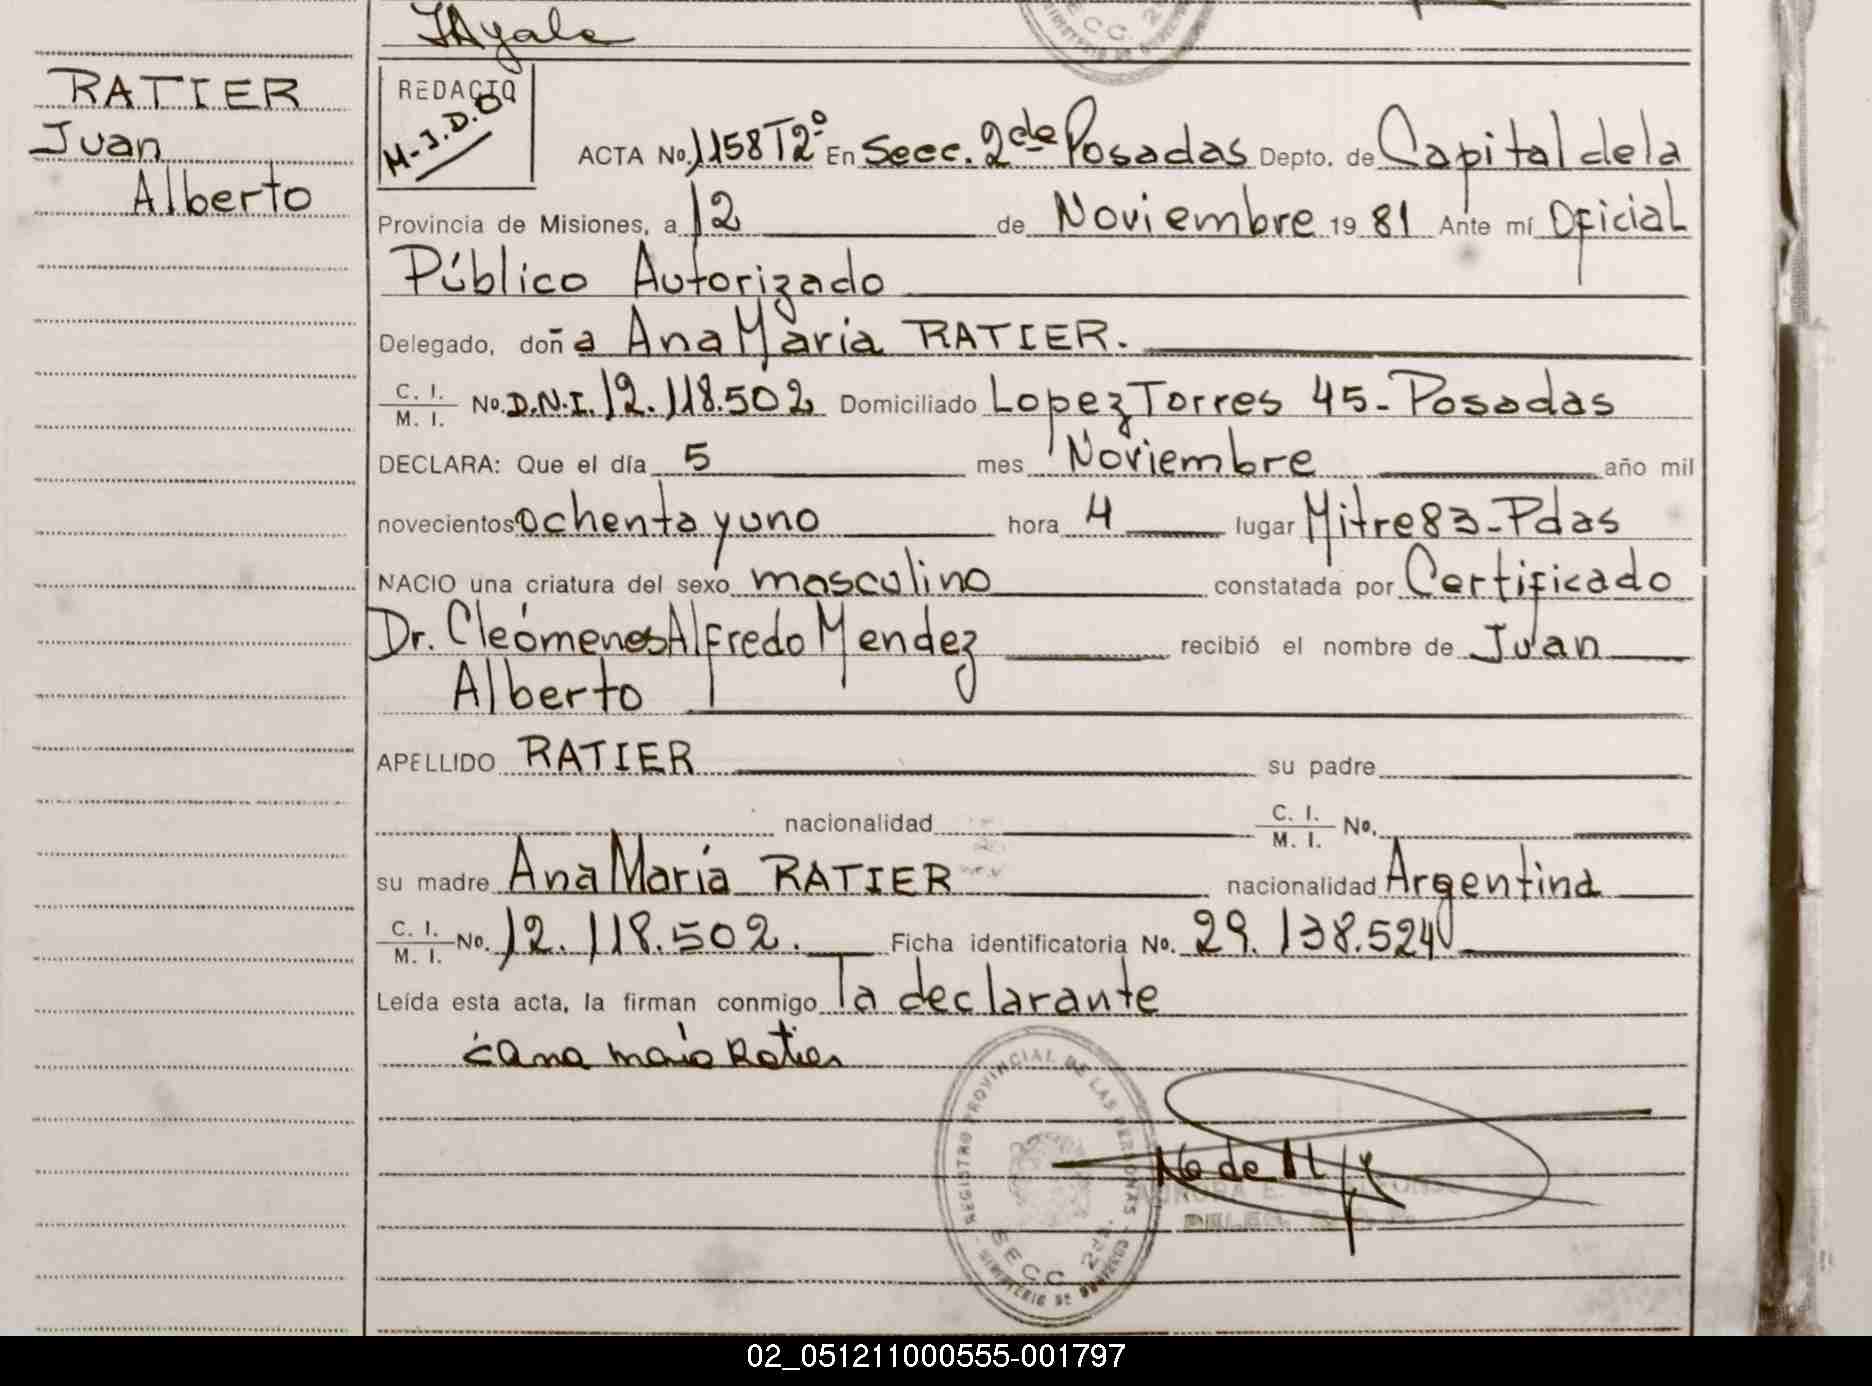 JAyala
RATIER
Juan
Alberto
REDACTO
M-J.D.O
ACTA No. 1158 T2º En Secc. 2da Posadas Depto. de Capital de la
Provincia de Misiones, a 12 de Noviembre 19 81 Ante mí Oficial
Público Autorizado
Delegado, doña Ana María RATIER.
C. I.
M. I. No. D.N.I. 12.118.502 Domiciliado Lopez Torres 45 - Posadas
DECLARA: Que el día 5 mes Noviembre año mil
novecientos ochenta y uno hora 4 lugar Mitre 83 - Pdas
NACIO una criatura del sexo masculino constatada por Certificado
Dr. Cleómenes Alfredo Mendez recibió el nombre de Juan
Alberto
APELLIDO RATIER su padre
nacionalidad C. I.
M. I. No.
su madre Ana María RATIER nacionalidad Argentina
C. I.
M. I. No. 12.118.502. Ficha identificatoria No. 29.138.524
Leída esta acta, la firman conmigo la declarante
ana maria Ratier
REGISTRO PROVINCIAL DE LAS PERSONAS
SECC. 2da.
MINISTERIO DE GOBIERNO
02_051211000555-001797